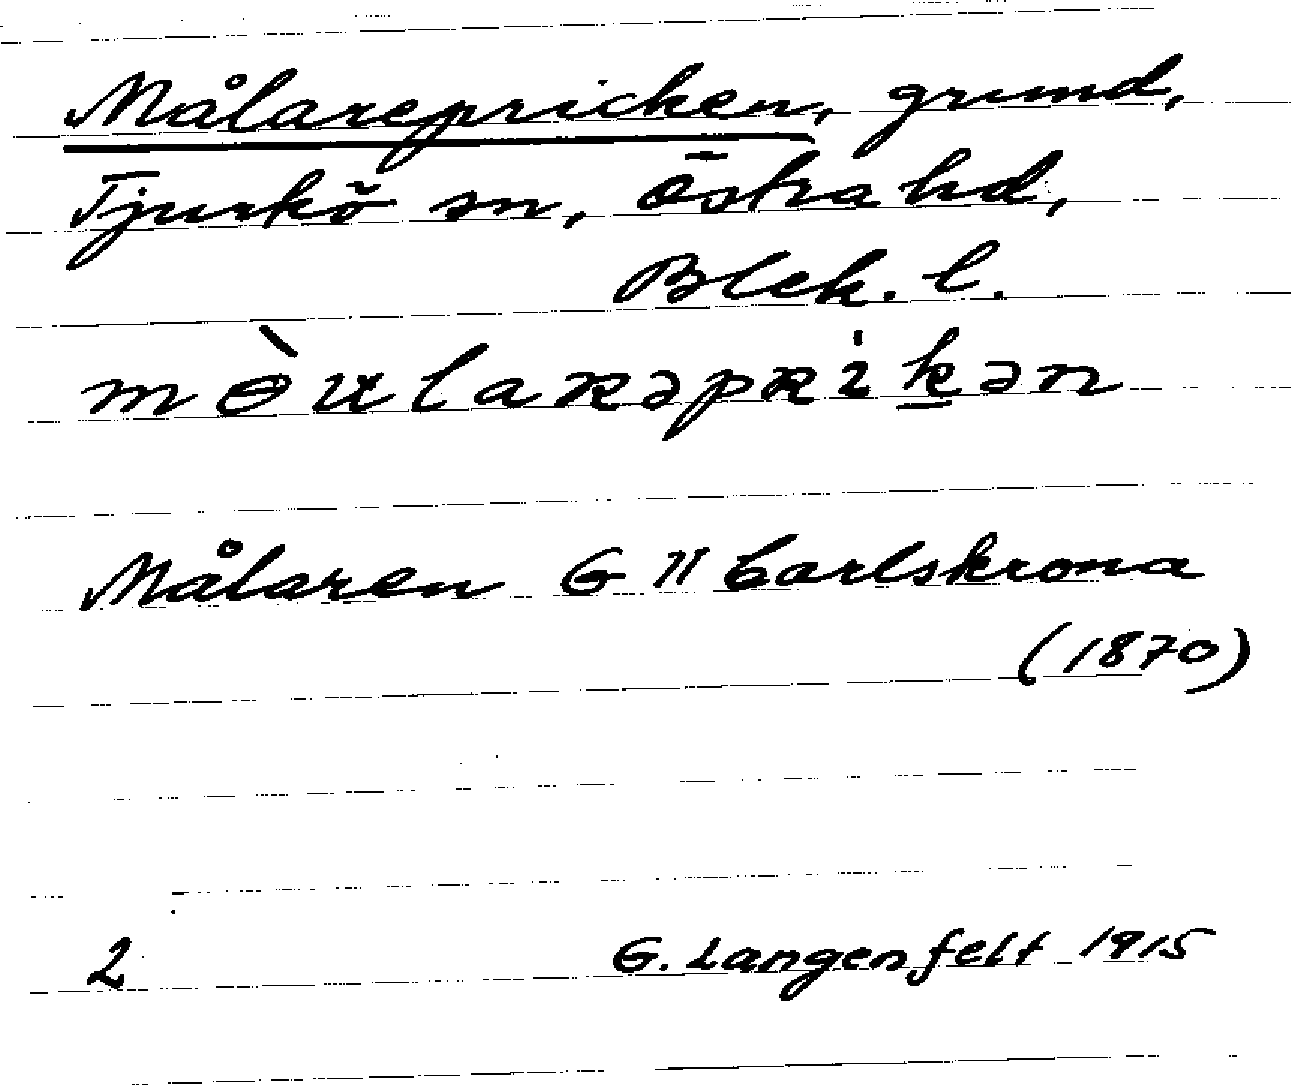 Målarepricken, grund,
Tjurkö sn, Östra hd,
Blek. l.
mèulaʀəpʀikən
Målaren G II Carlskrona
(1870)
2 G. Langenfelt 1915